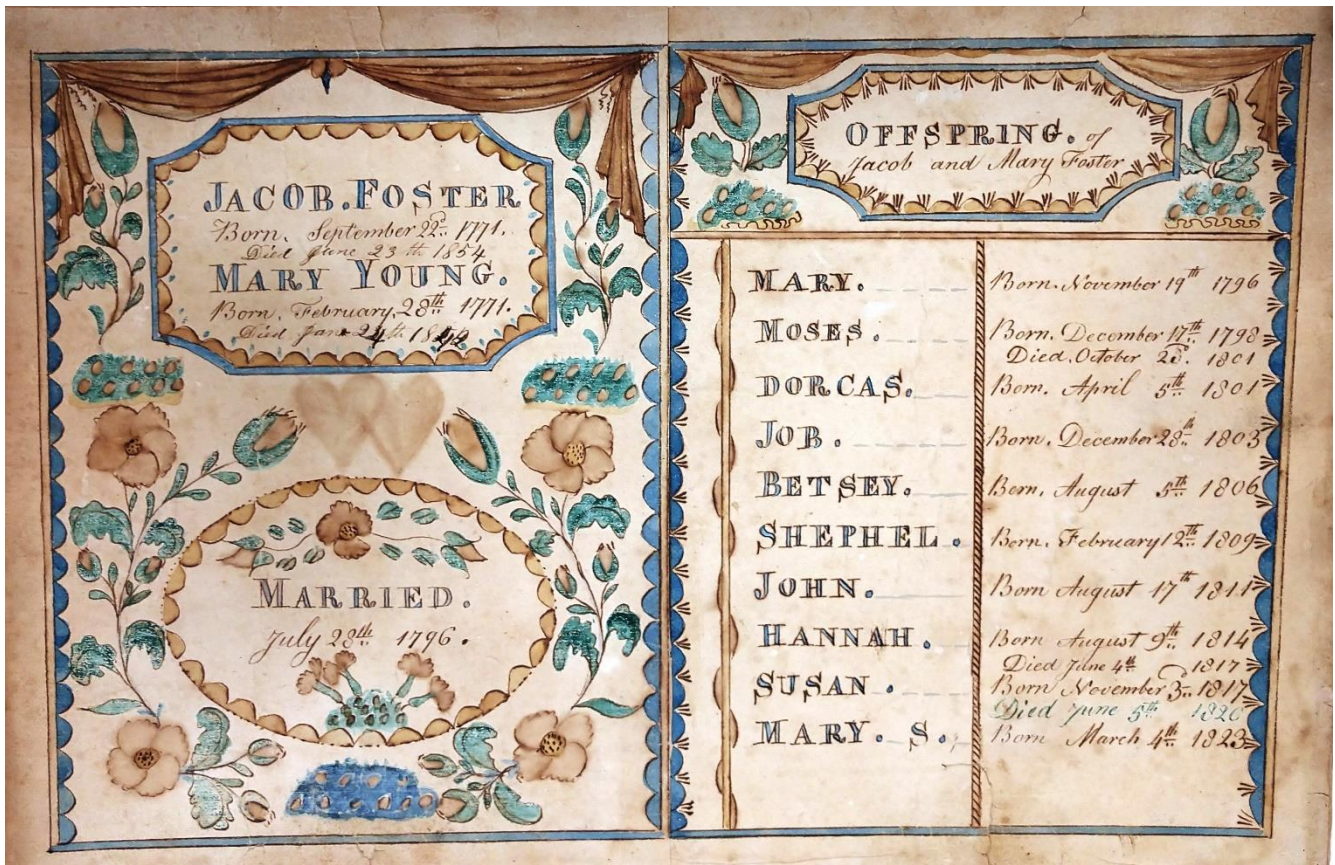 JACOB. FOSTER
Born. September 22d. 1771.
Died June 23th 1854
MARY YOUNG.
Born, February, 28th 1771.
Died 24th
MARRIED.
July 28th 1796.
OFFSPRING. of
Jacob and Mary Foster
MARY. Born. November 19th 1796
MOSES. Born. December 17th 1798
Died. October 1801
DORCAS. Born. April 5th 1801
JOB. Born. December 28th 1803
BETSEY. Born. August 5th 1806
SHEPHEL. Born. February 12th 1809
JOHN. Born August 17th 1811
HANNAH. Born August 9th 1814
Died June 4th 1817
SUSAN. Born November 3d. 1817
Died June 5th
MARY. S. Born March 4th 1823